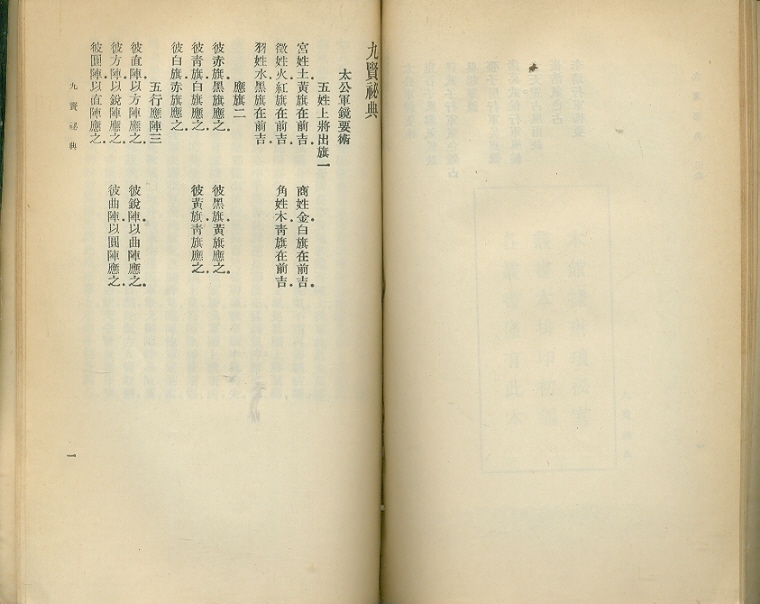 九賢祕典
太公軍鏡要術
五姓上將出旗一
宮姓土黃旗在前吉。 商姓金白旗在前吉。
徵姓火紅旗在前吉。 角姓木靑旗在前吉。
羽姓水黑旗在前吉。
應旗二
彼赤旗黑旗應之。 彼黑旗黃旗應之。
彼靑旗白旗應之。 彼黃旗靑旗應之。
彼白旗赤旗應之。
五行應陣三
彼直陣以方陣應之。 彼銳陣以曲陣應之。
彼方陣以銳陣應之。 彼曲陣以圓陣應之。
彼圓陣以直陣應之。
九賢祕典
一